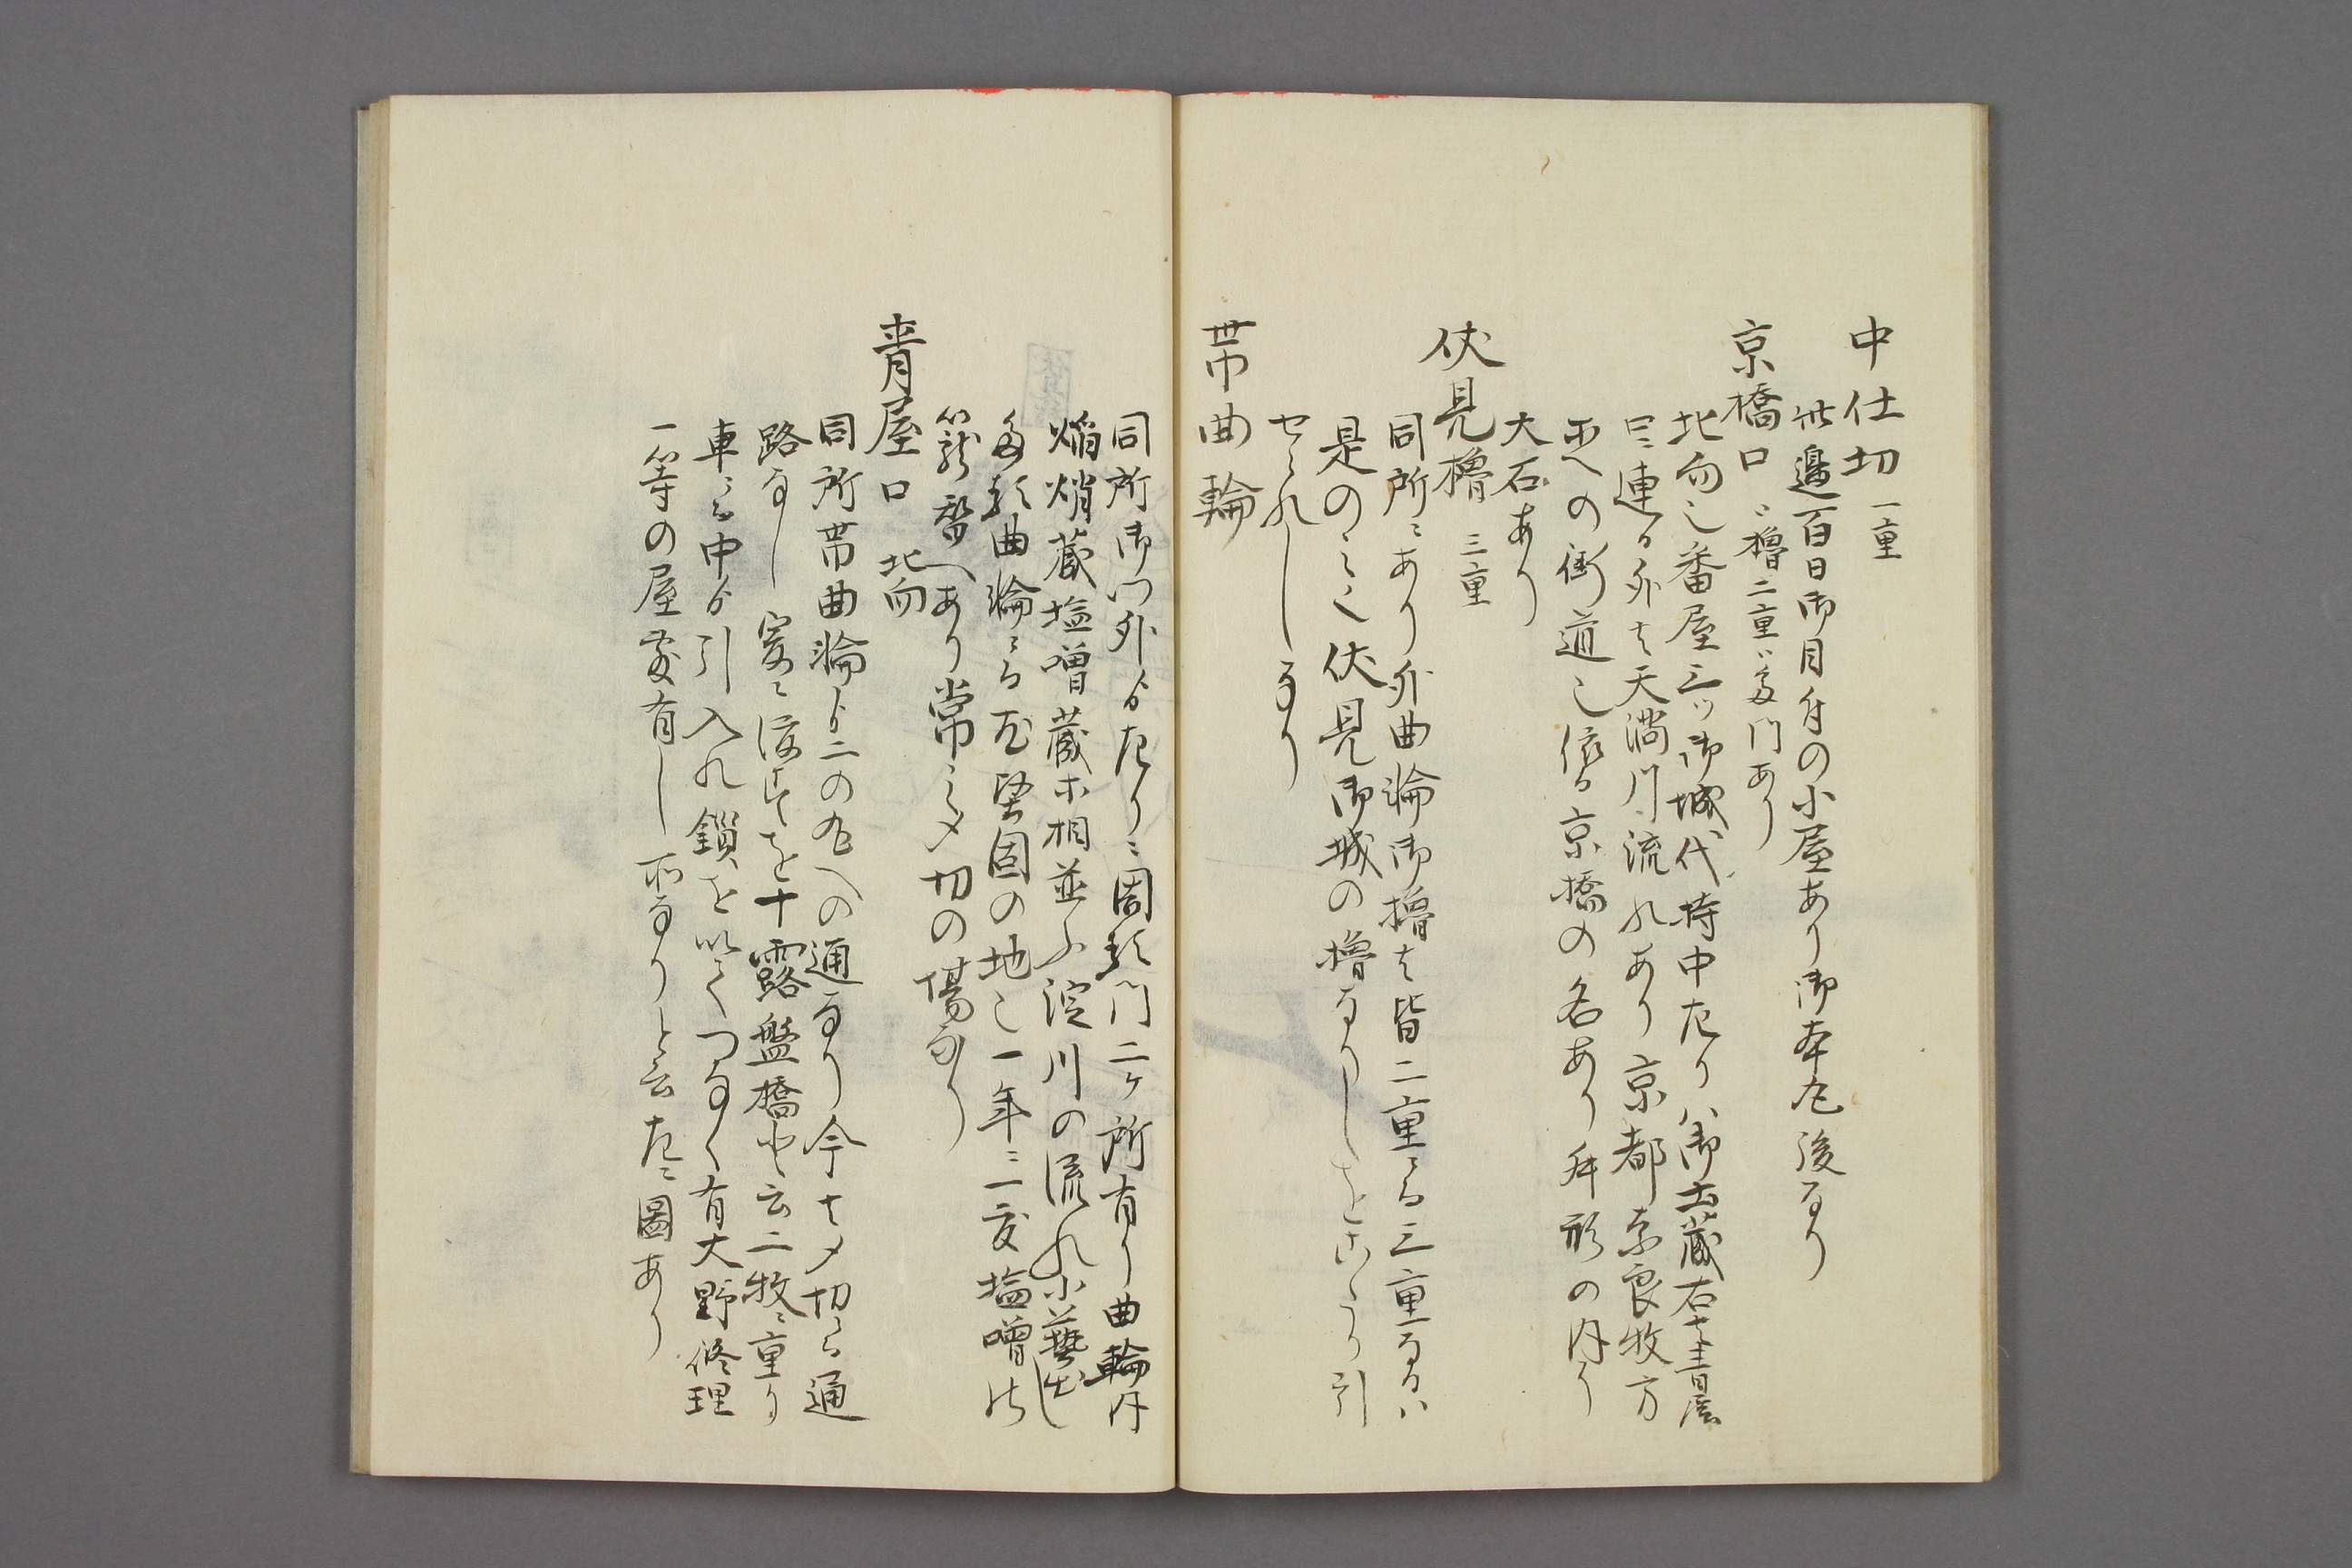 中仕切 一重
此邊百日御目付の小屋あり御本丸後なり
京橋口 櫓二重 多門あり
北向也番屋三ッ御城代持中左りハ御土蔵右者青屋
口ニ連る外者天満川流れあり京都奈良牧方
への街道也依る京橋の名あり舛形の内ニ
大石あり
伏見櫓 三重
同所ニあり外曲輪御櫓者皆二重ニる三重なるハ
是のミ也伏見御城の櫓なりしを引
せられしなり
帯曲輪
同所御門外ゟ左りニ埋門二ヶ所有り曲輪内
焔焇蔵塩噌蔵木相並ふ淀川の流れ
曲輪ニる堅固の地也一年ニ一度塩噌
詰替へあり常ニ〆切の場なり
青屋口 北向
同所帯曲輪ゟ二の丸への通なり今者〆切ニる通
路なし爰ニ渡すを十露盤橋と云二枚ニ重り
車ニる中ゟ引入れ鎖を以てつなく有大野修理
一等の屋敷有し所なりと云左ニ圖あり